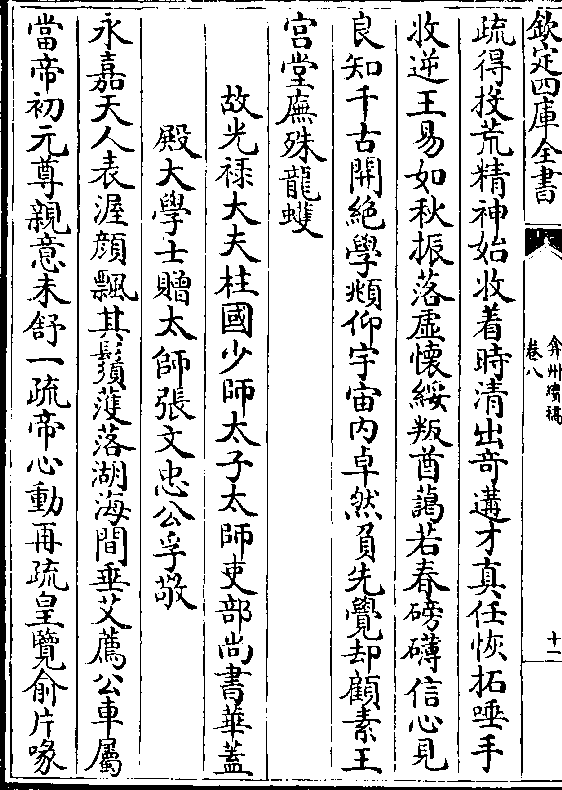 欽定四庫全書
弇州續稿
卷八
十二
疏得投荒精神始收着時清出竒遘才真任恢拓唾手
收逆王易如秋振落虚懐綏叛酋藹若春磅礴信心見
良知千古開絶學頫仰宇宙内卓然負先覺却顧素王
宫堂廡殊龍蠖
故光禄大夫柱國少師太子太師吏部尚書華蓋
殿大學士贈太師張文忠公孚敬
永嘉天人表渥顔飄其鬚濩落湖海間垂艾薦公車屬
當帝初元尊親意未舒一疏帝心動再疏皇覽俞片喙